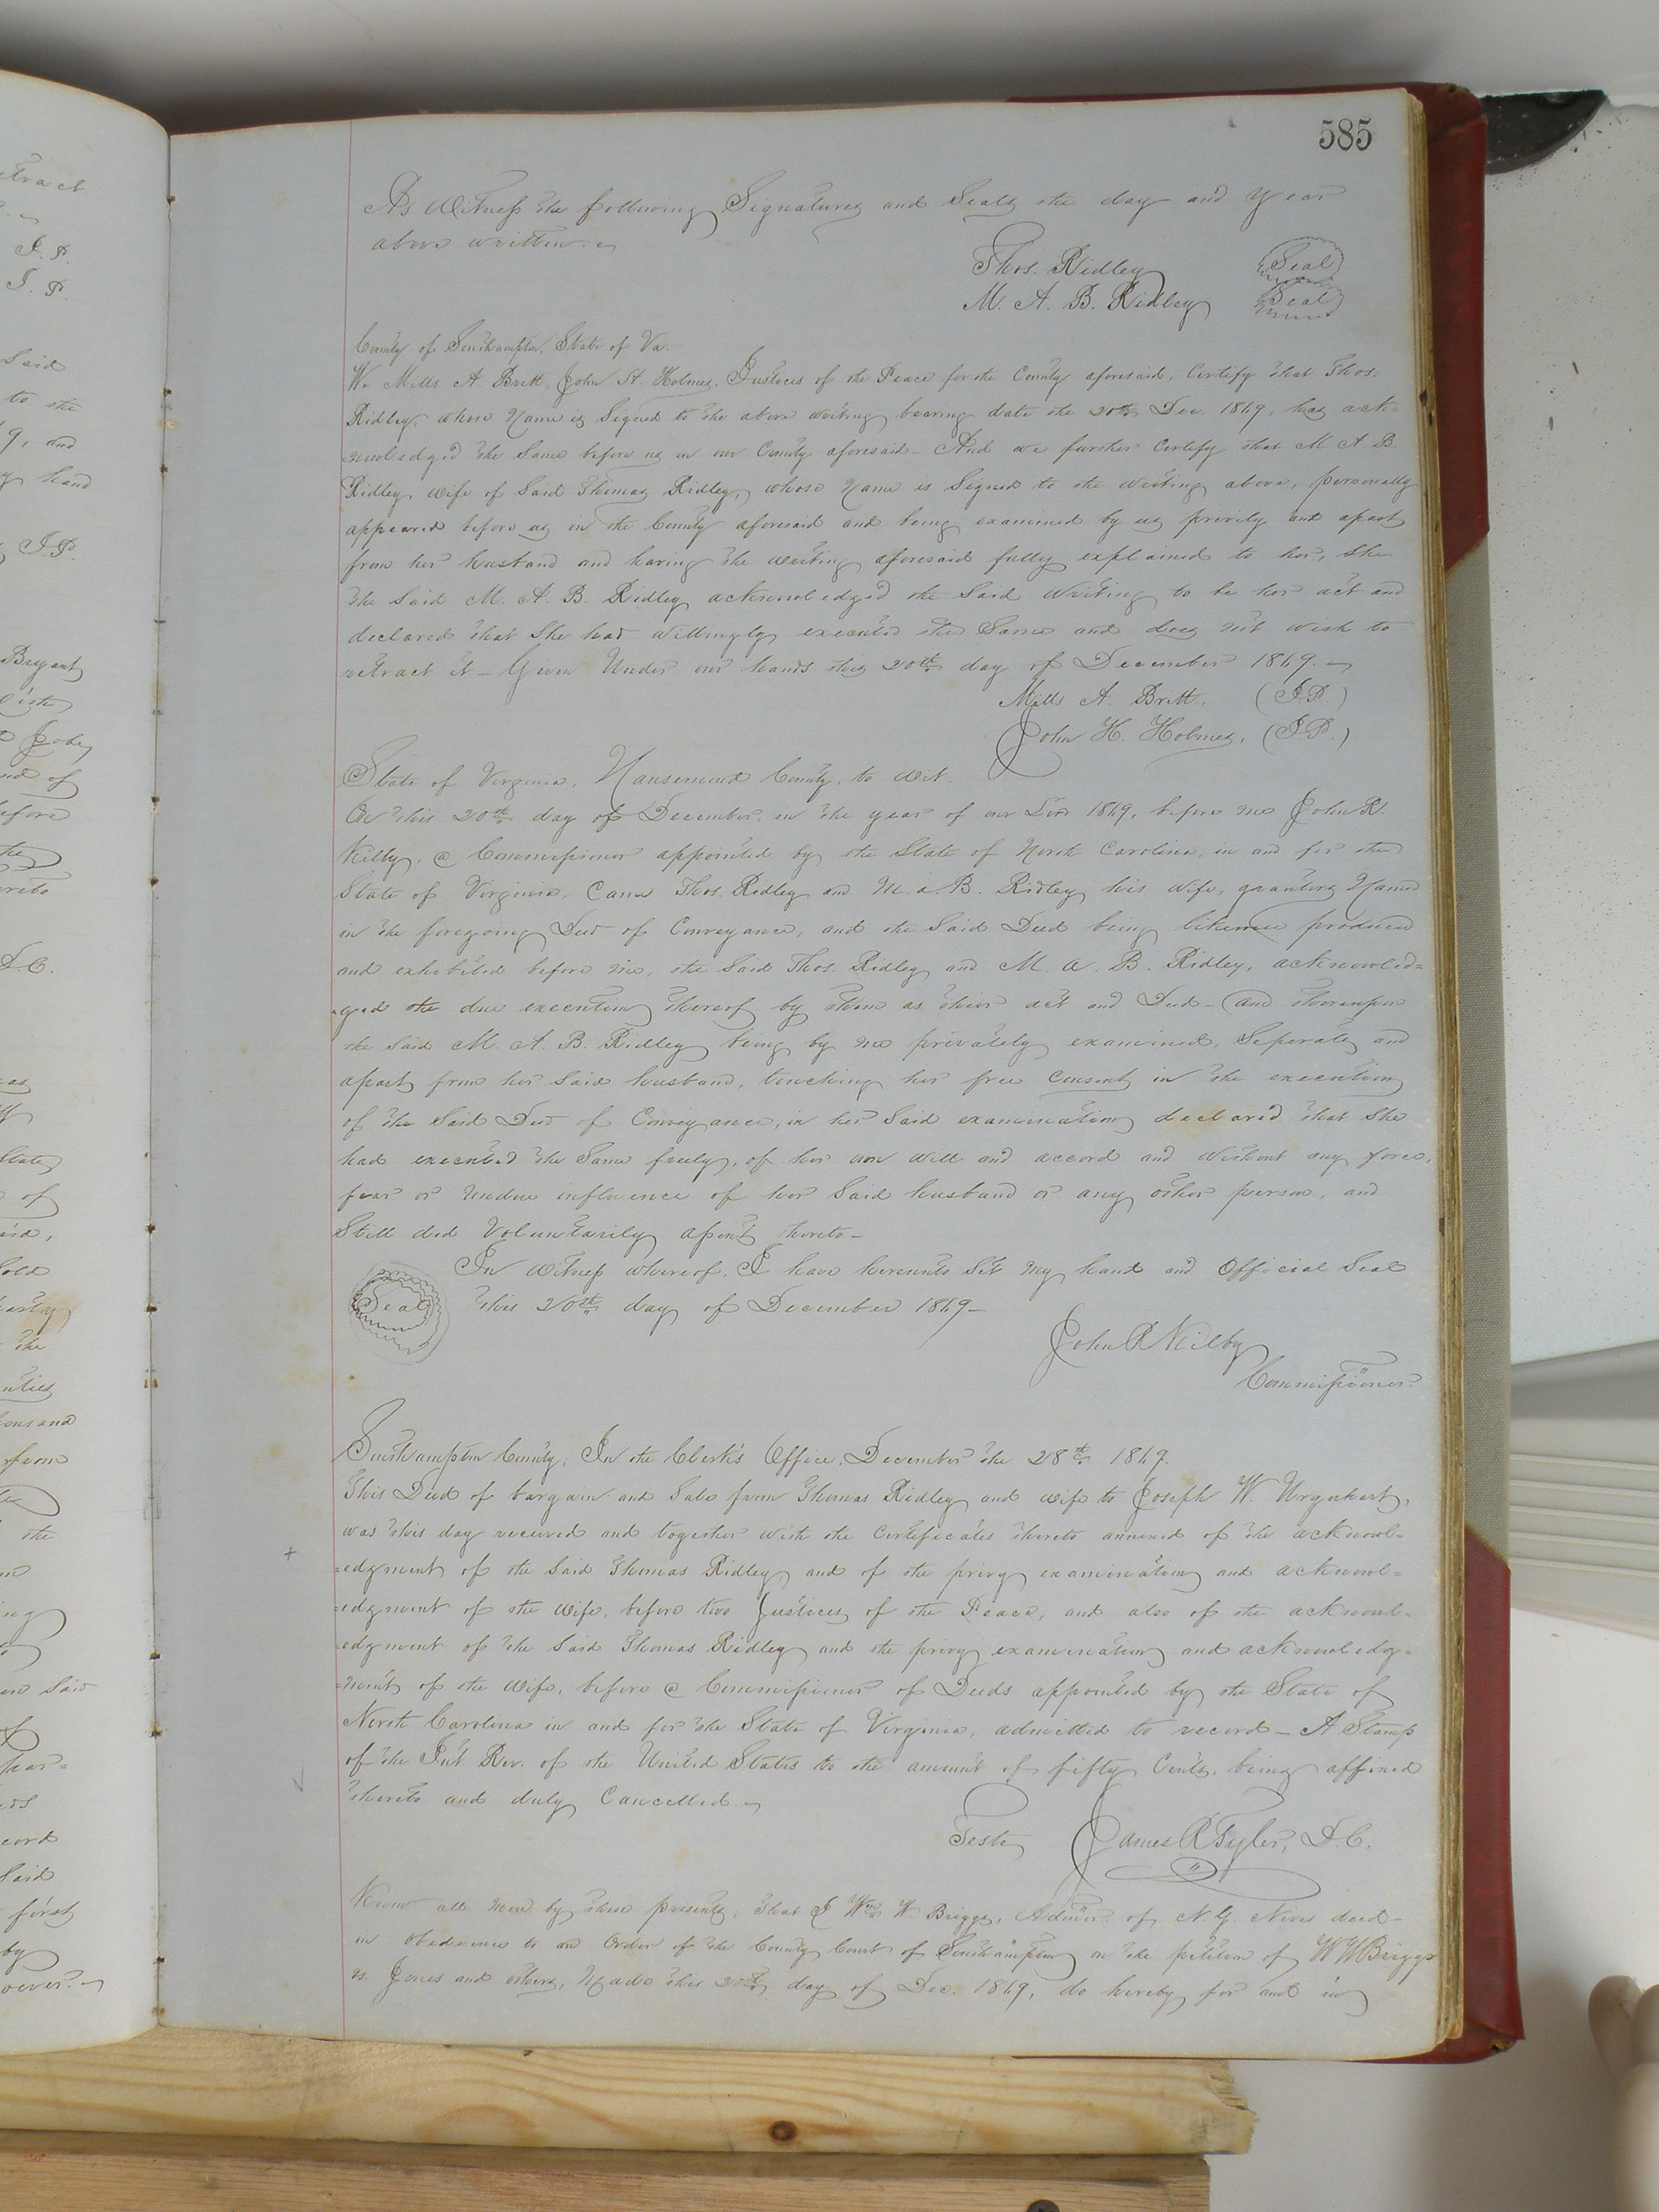 585
As Witness the following Signatures and Seals the day and year
above written.
Thos. Ridley (Seal)
M. A. B. Ridley (Seal)
County of Southampton, State of Va.
We Mills A. Britt, John H. Holmes, Justices of the Peace for the County aforesaid, Certify that Thos.
Ridley, whose Name is Signed to the above writing bearing date the 20th Dec. 1869, has ack=
=nowledged the Same before us in our County aforesaid - And we further Certify that M. A. B.
Ridley, wife of Said Thomas Ridley, whose Name is Signed to the writing above, personally
appeared before us in the County aforesaid and being examined by us privily and apart
from her husband and having the writing aforesaid fully explained to her, She
the Said M. A. B. Ridley acknowledged the Said Writing to be her act and
declared that She had willingly executed the Same and does not wish to
retract it - Given Under our hands this 20th day of December 1869.
Mills A. Britt. (J.P.)
John H. Holmes, (J.P.)
State of Virginia, Nansemond County, to wit.
On this 20th day of December, in the year of our Lord 1869, before me John R.
Kilby, a Commissioner appointed by the State of North Carolina, in and for the
State of Virginia, Came Thos. Ridley and M. A. B. Ridley his Wife, grantors Named
in the foregoing Deed of Conveyance, and the Said Deed being likewise produced
and exhibited before me, the Said Thos. Ridley and M. A. B. Ridley, acknowled=
=ged the due execution thereof by them as their act and Deed - and thereupon
the Said M. A. B. Ridley being by me privately examined, Seperate and
apart from her Said husband, touching her free Consent in the execution
of the Said Deed of Conveyance, in her Said examination declared that She
had executed the Same freely, of her own Will and accord and Without any force,
fear or Undue influence of her Said husband or any other person, and
Still did Voluntarily assent thereto -
In Witness whereof, I have hereunto Set my hand and Official Seal
(Seal) this 20th day of December 1869 -
John R Kilby
Commissioner.
Southampton County, In the Clerk's Office, December the 28th 1869.
This Deed of bargain and Sale from Thomas Ridley and wife to Joseph W. Urquhart,
was this day received and together with the Certificates thereto annexed of the acknowl=
=edgment of the Said Thomas Ridley, and of the privy examination and acknowl=
=edgment of the Wife, before two Justices of the Peace, and also of the acknowl=
=edgment of the Said Thomas Ridley and the privy examination and acknowledg=
=ment of the Wife, before a Commissioner of Deeds appointed by the State of
North Carolina in and for the State of Virginia, admitted to record - A Stamp
of the Int. Rev. of the United States to the amount of fifty Cents, being affixed
thereto and duly Cancelled.
Teste James R Tyler, D.C.
Know all Men by these presents, that I Wm W. Briggs, Admr. of decd -
in obedience to an Order of the County Court of Southampton on the petition of W W Briggs
vs. Jones and others, Made this 20th day of Dec. 1869, do hereby for and in